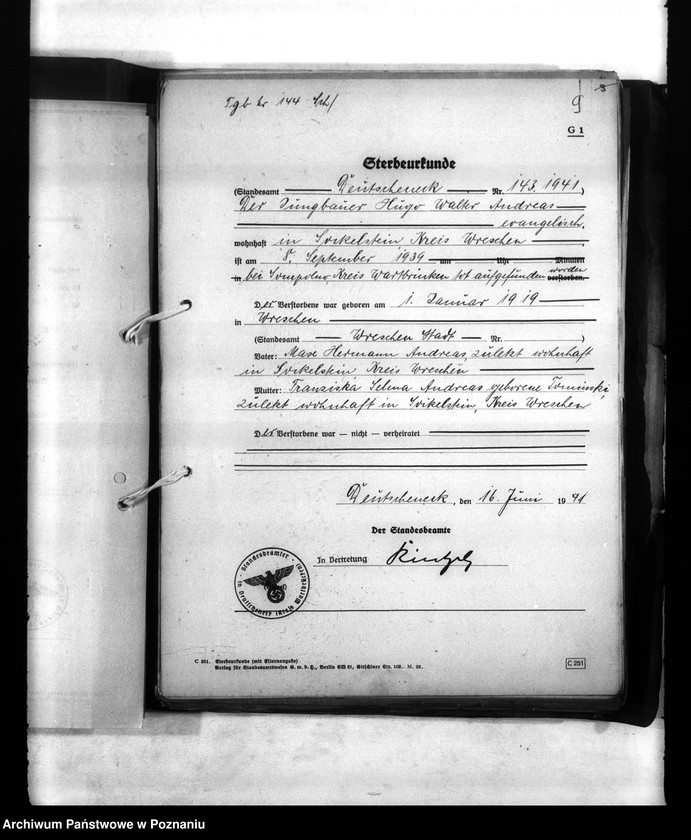 Tgb Nr 144
9
G 1
Sterbeurkunde
(Standesamt Deutscheneck Nr. 143 1941)
Der Jungbauer Hugo Walter Andreas
evangelisch,
wohnhaft in Sockelstein Kreis Wreschen
ist am 8. September 1939 um Uhr Minuten
in bei Sompolno, Kreis Wartbrücken tot aufgefunden worden verstorben.
Der Verstorbene war geboren am 1. Januar 1919
in Wreschen
(Standesamt Wreschen Stadt Nr. )
Vater: Max Hermann Andreas, zuletzt wohnhaft
in Sockelstein Kreis Wreschen
Mutter: Franziska Selma Andreas geborene Tominski,
zuletzt wohnhaft in Sockelstein, Kreis Wreschen
Der Verstorbene war — nicht — verheiratet
Deutscheneck, den 16. Juni 1941
Der Standesbeamte
In Vertretung
Standesbeamter
in Deutscheneck (Kreis
C 251. Sterbeurkunde (mit Elternangabe)
Verlag für Standesamtswesen G. m. b. H., Berlin SW 61, Gitschiner Str. 109.
C 251
Archiwum Państwowe w Poznaniu